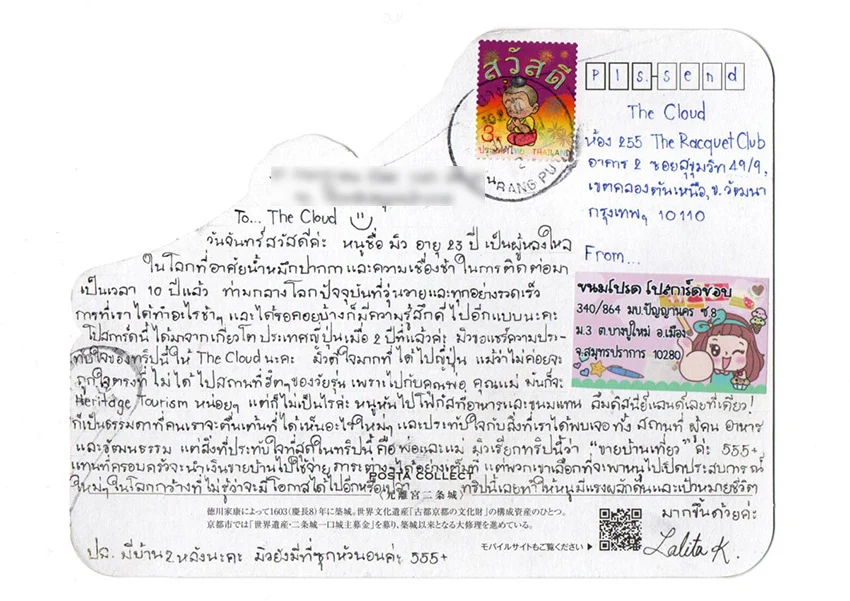 สวัสดี
3
ประเทศไทย THAILAND
Pls.-send
The Cloud
ห้อง 255 The Racquet Club
อาคาร 2 ซอยสุขุมวิท 49/9,
เขตคลองตันเหนือ, ข.วัฒนา
กรุงเทพฯ 10110
From...
ขนมโปรด โปสการ์ดชอบ
340/864 มบ.ปัญญานคร ซ.8
ม.3 ต.บางปูใหม่ อ.เมือง
จ.สมุทรปราการ 10280
To... The Cloud
วันจันทร์สวัสดีค่ะ หนูชื่อ มิว อายุ 23 ปี เป็นผู้หลงใหล
ในโลกที่อาศัยน้ำหมึกปากกา และความเชื่องช้า ในการติดต่อมา
เป็นเวลา 10 ปีแล้ว ท่ามกลางโลกปัจจุบันที่วุ่นวายและทุกอย่างรวดเร็ว
การที่เราได้ทำอะไรช้าๆ และได้รอคอยบ้างก็มีความรู้สึกดี ไปอีกแบบนะคะ
โปสการ์ดนี้ ได้มาจากเกียวโต ประเทศญี่ปุ่นเมื่อ 2 ปีที่แล้วค่ะ มิวขอแชร์ความประ-
ทับใจของทริปนี้ให้ The Cloud นะคะ มิวดีใจมากที่ ได้ไปญี่ปุ่น แม้ว่าไม่ค่อยจะ
ถูกใจตรงที่ ไม่ได้ ไปสถานที่ฮิตๆของวัยรุ่น เพราะไปกับคุณพ่อ คุณแม่ มันก็จะ
Heritage Tourism หน่อยๆ แต่ก็ไม่เป็นไรค่ะ หนูหันไปโฟกัสที่อาหารและขนมแทน ลืมดิสนีย์แลนด์เลยทีเดียว!
ก็เป็นธรรมดาที่คนเราจะตื่นเต้นที่ได้เห็นอะไรใหม่ๆ และประทับใจกับสิ่งที่เราได้พบเจอ ทั้ง สถานที่ ผู้คน อาหาร
และวัฒนธรรม แต่สิ่งที่ประทับใจที่สุดในทริปนี้ คือ พ่อและแม่ มิวเรียกทริปนี้ว่า "ขายบ้านเที่ยว" ค่ะ 555+
แทนที่ครอบครัวจะนำเงินขายบ้านไปใช้จ่ายภาระต่างๆได้อย่างเต็มที่ แต่พวกเขาเลือกที่จะพาหนูไปเปิดประสบการณ์
ใหม่ๆในโลกกว้างที่ไม่รู้ว่าจะมีโอกาสได้ไปอีกหรือเปล่า ทริปนี้เลยทำให้หนูมีแรงผลักดันและเป้าหมายชีวิต
มากขึ้นด้วยค่ะ
POSTA COLLECT
(元離宮二条城)
徳川家康によって1603(慶長8)年に築城。世界文化遺産「古都京都の文化財」の構成資産のひとつ。
京都市では「世界遺産・二条城一口城主募金」を募り、築城以来となる大修理を進めている。
モバイルサイトもご覧ください ▶
Lalita K.
ปล. มีบ้าน 2 หลังนะคะ มิวยังมีที่ซุกหัวนอนค่ะ 555+